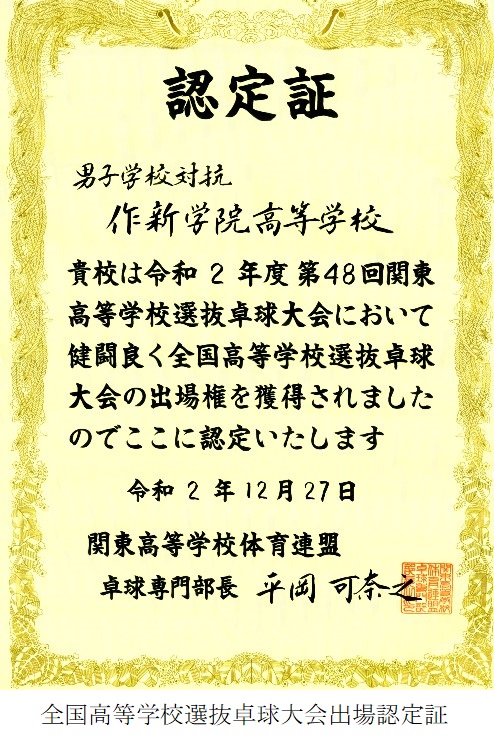 認定証
男子学校対抗
作新学院高等学校
貴校は令和 2 年度 第48回関東
高等学校選抜卓球大会において
健闘良く全国高等学校選抜卓球
大会の出場権を獲得されました
のでここに認定いたします
令和 2 年 12月 27日
関東高等学校体育連盟
卓球専門部長 平岡 可奈之
全国高等学校選抜卓球大会出場認定証